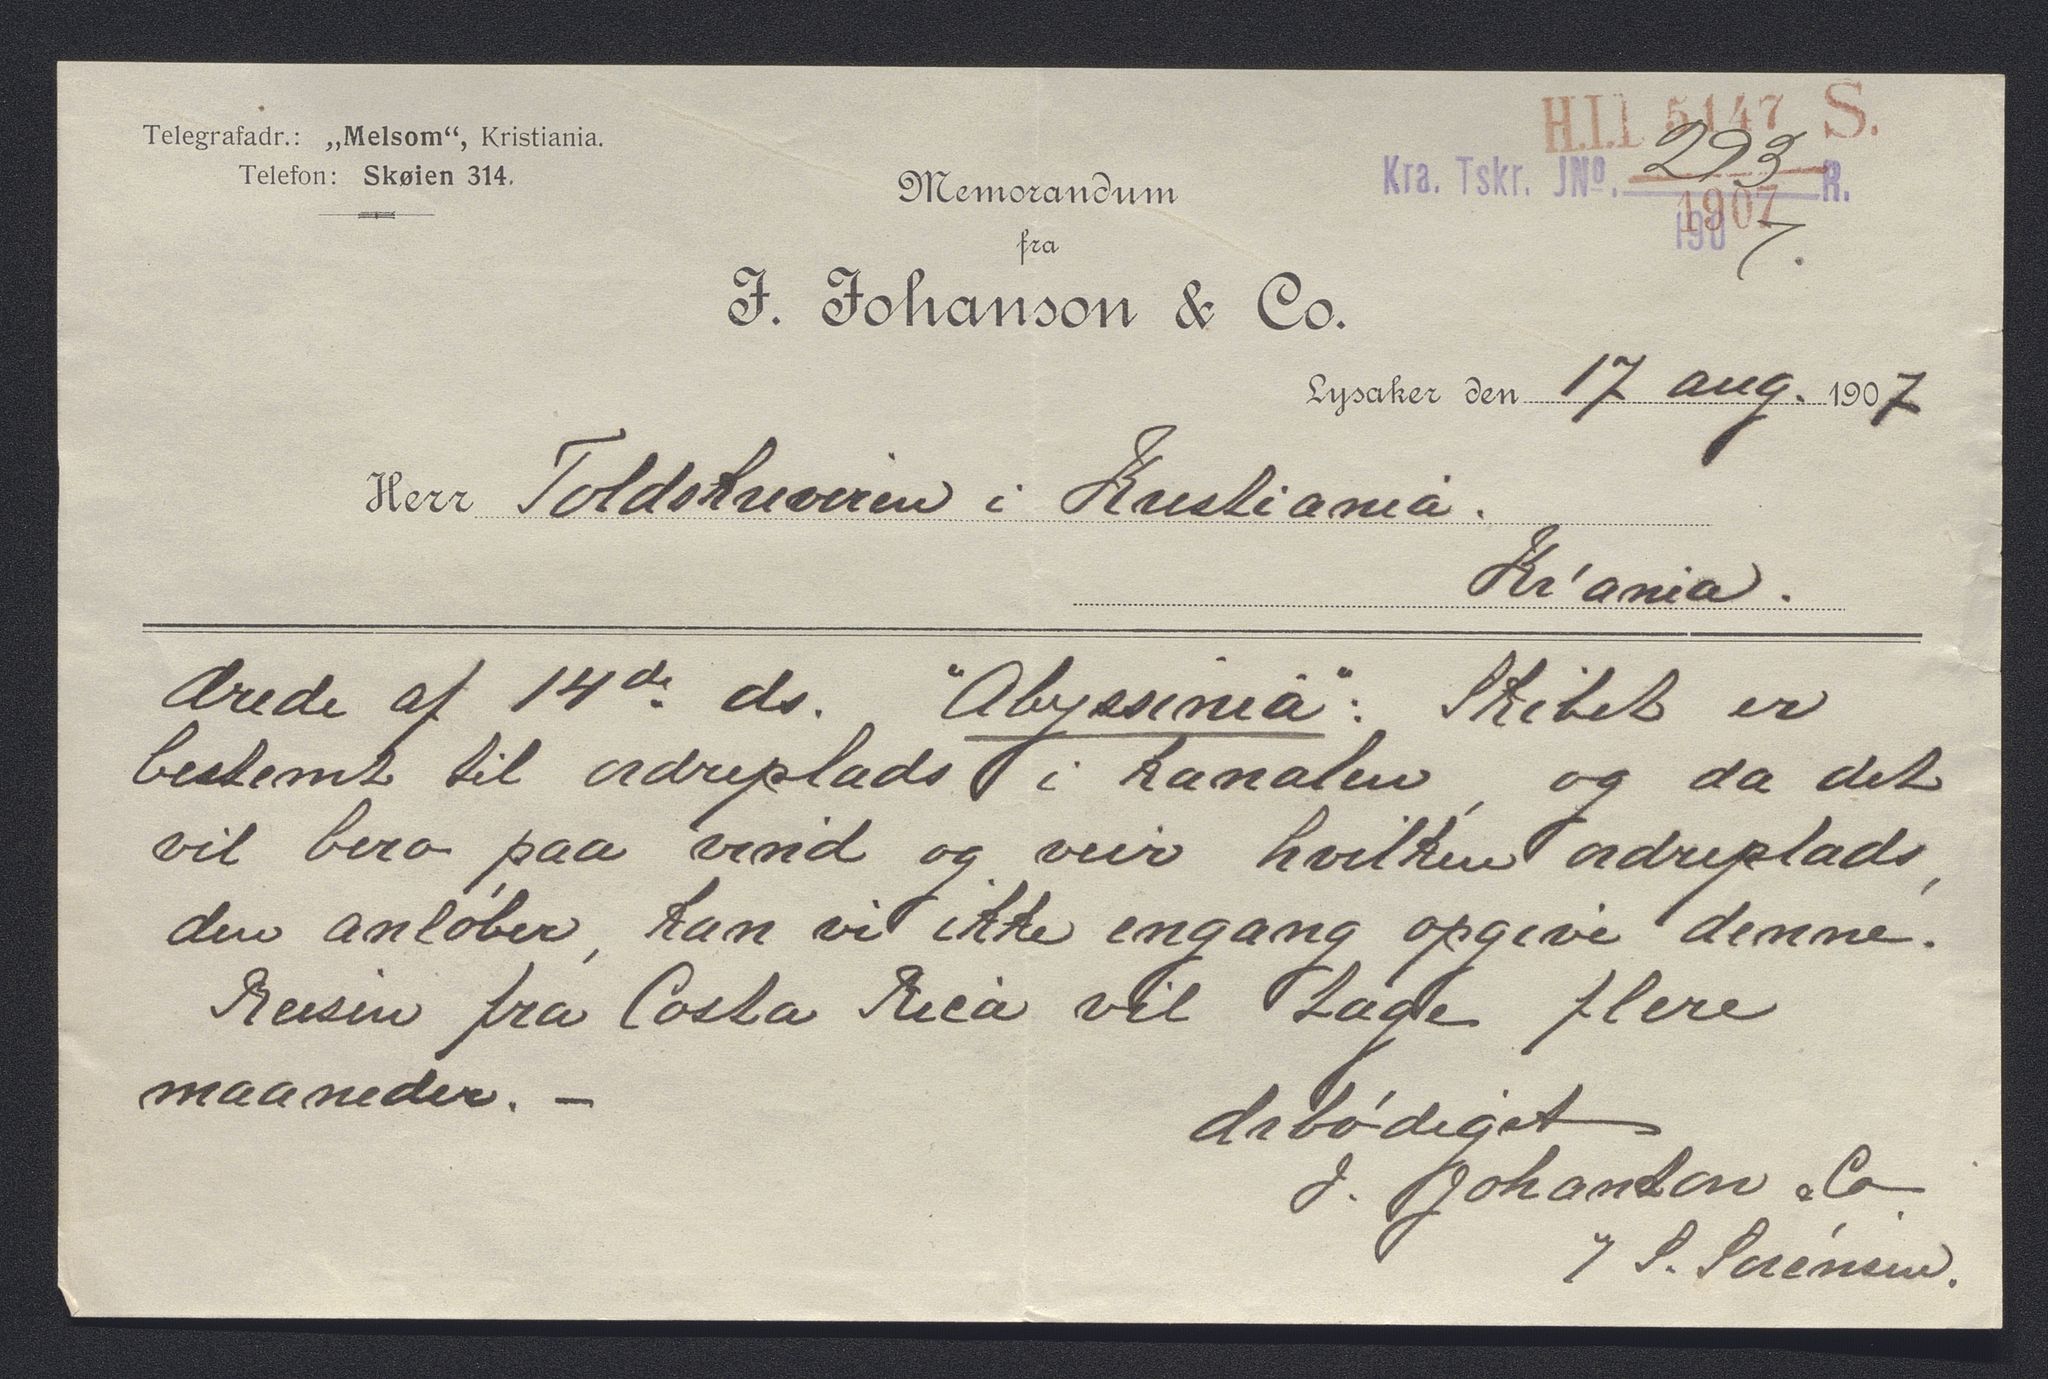 Telegrafadr.: „Melsom“, Kristiania.
Telefon: Skøien 314.
H.I.I 5147 S.
Kra. Tskr. JNº. 293 R.
1907
190 7.
Memorandum
fra
J. Johanson & Co.
Lysaker den 17 aug. 1907
Herr Toldskriveren i Kristiania.
Kr'ania.
Ærede af 14de ds. "Abyssinia": Skibet er
bestemt til ordreplads i kanalen, og da det
vil bero paa vind og veir hvilken ordreplads,
den anløber, kan vi ikke engang opgive denne.
Reisen fra Costa Rica vil tage flere
maaneder. —
Ærbødigst
J. Johanson & Co.
/ S. Sørensen.